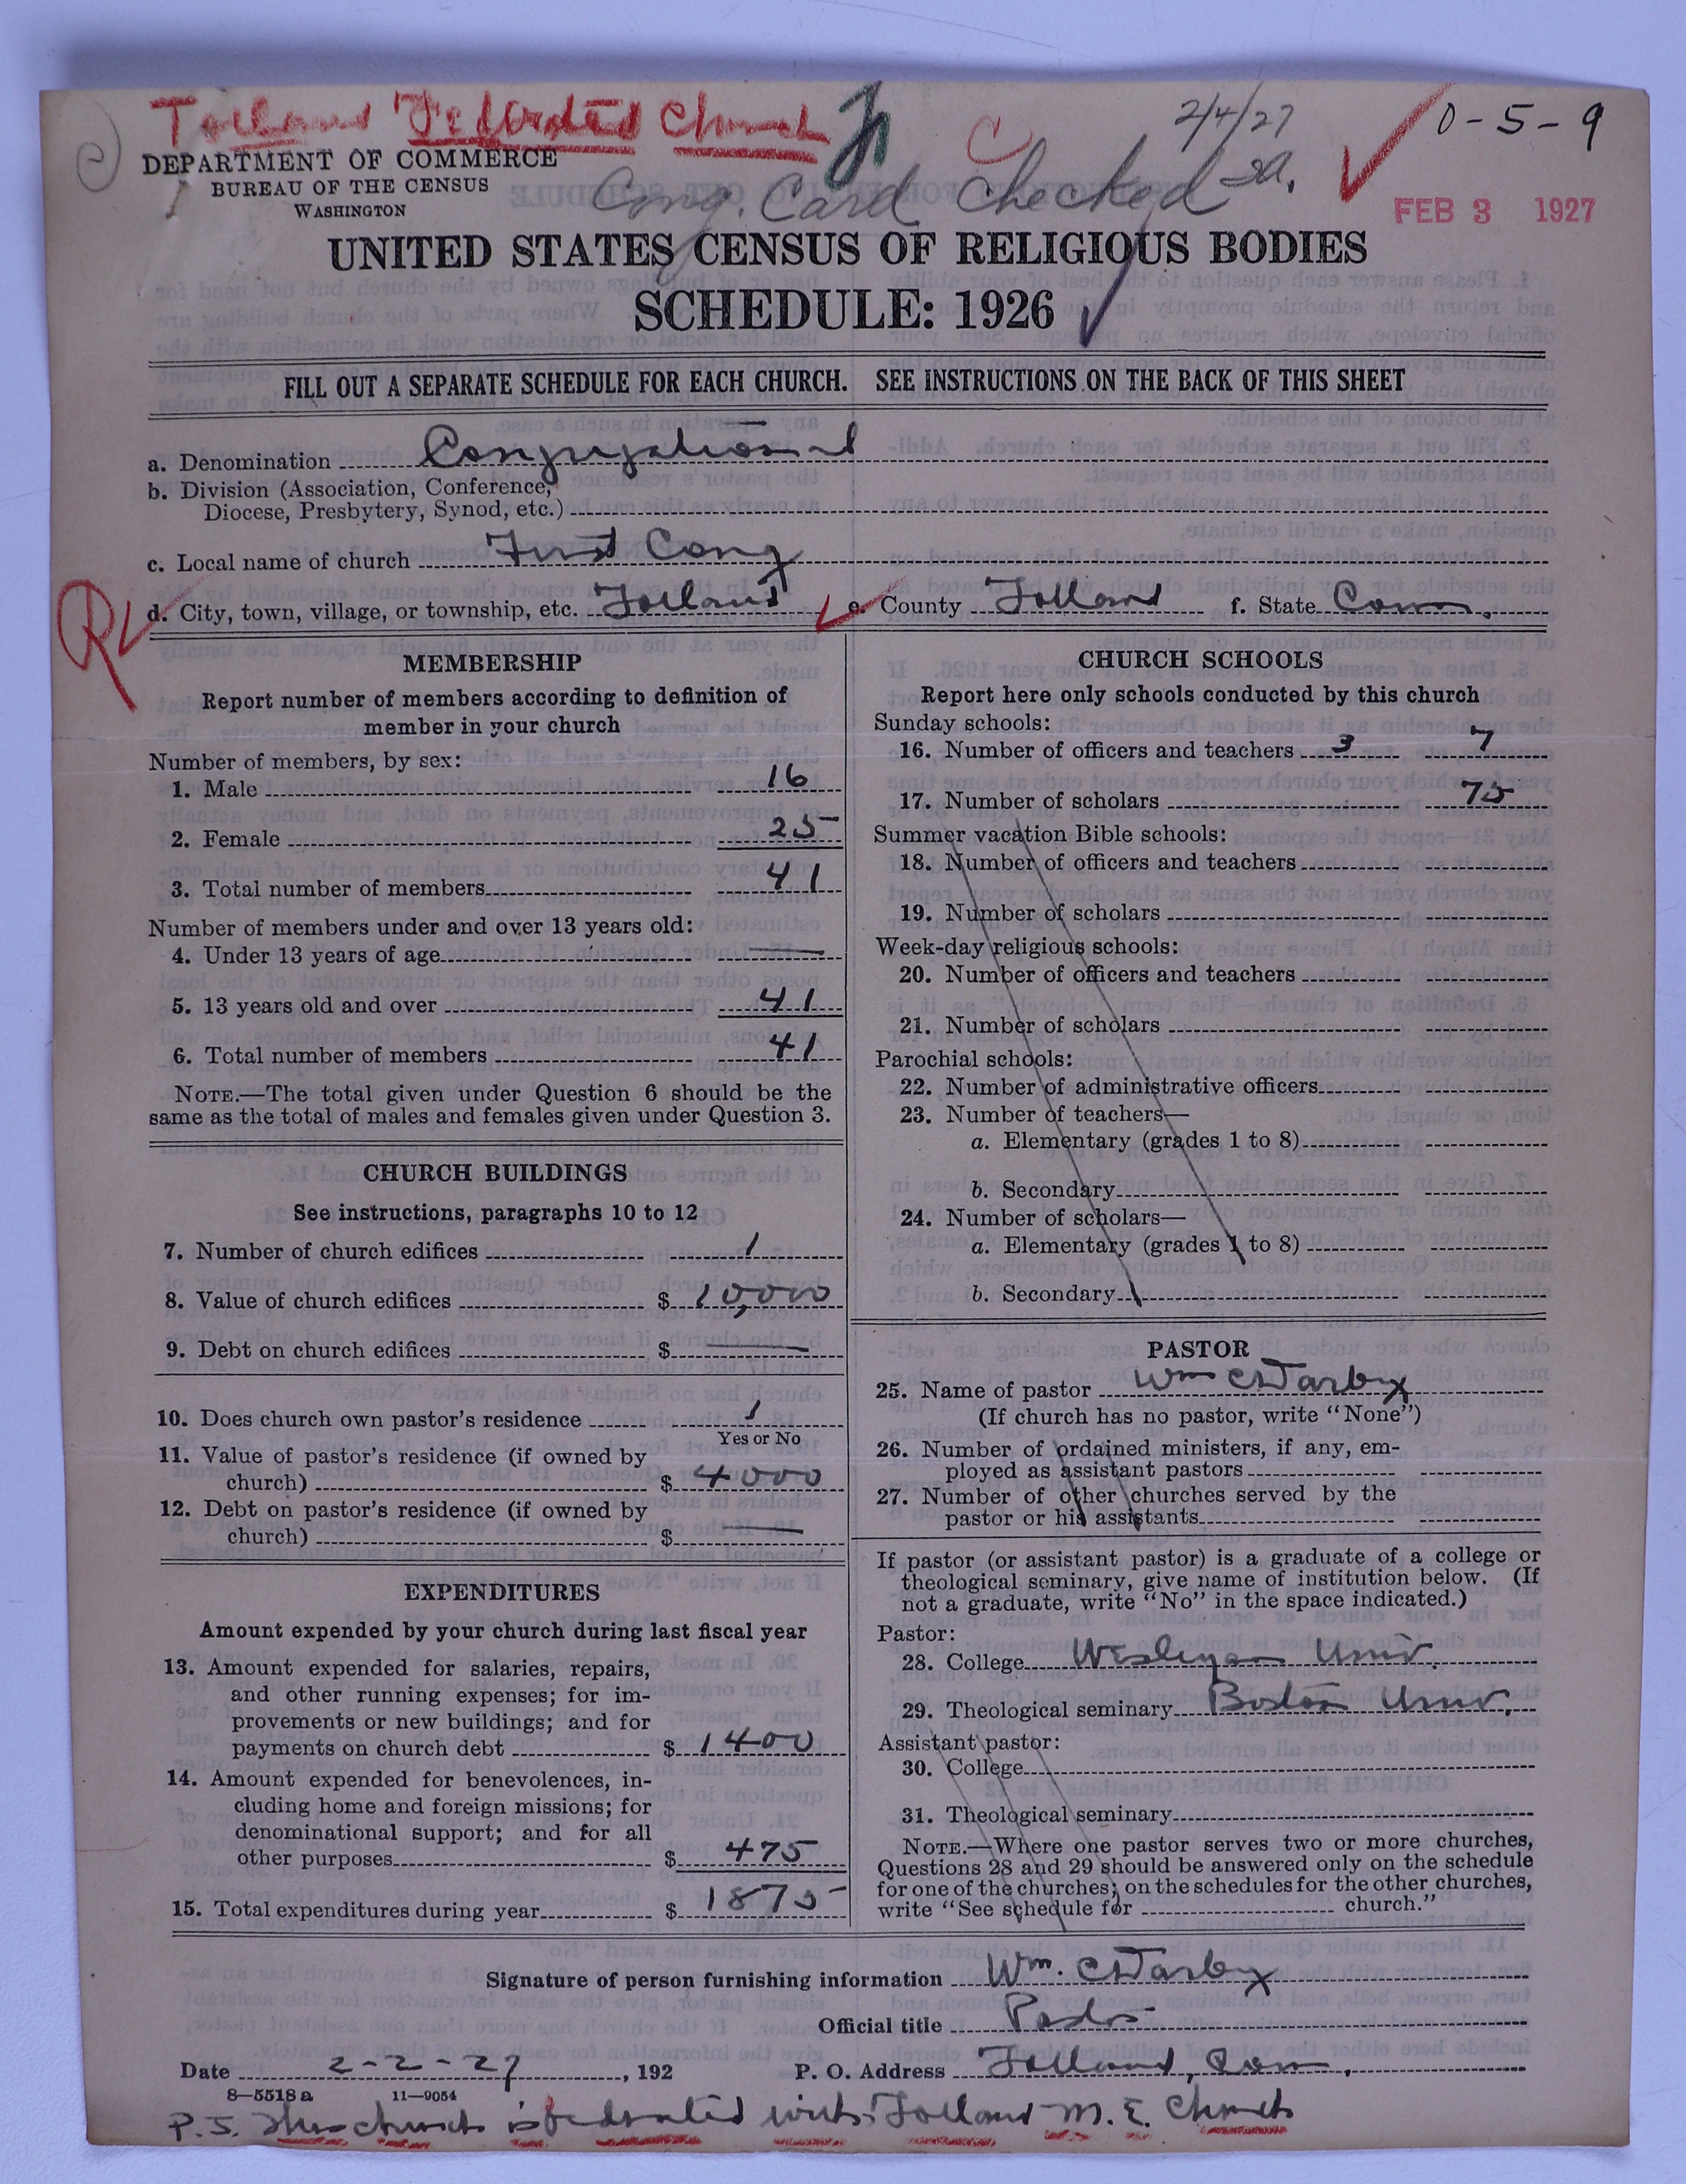 Tolland Federated Church
2/4/27
0-5-9
DEPARTMENT OF COMMERCE
BUREAU OF THE CENSUS
WASHINGTON
Cong. Card Checked
FEB 3 1927
UNITED STATES CENSUS OF RELIGIOUS BODIES
SCHEDULE: 1926
FILL OUT A SEPARATE SCHEDULE FOR EACH CHURCH. SEE INSTRUCTIONS ON THE BACK OF THIS SHEET
a. Denomination Congregational
b. Division (Association, Conference,
Diocese, Presbytery, Synod, etc.)
c. Local name of church First Cong
d. City, town, village, or township, etc. Tolland e. County Tolland f. State Conn.
MEMBERSHIP
Report number of members according to definition of
member in your church
Number of members, by sex:
1. Male 16
2. Female 25
3. Total number of members 41
Number of members under and over 13 years old:
4. Under 13 years of age —
5. 13 years old and over 41
6. Total number of members 41
NOTE.—The total given under Question 6 should be the
same as the total of males and females given under Question 3.
CHURCH BUILDINGS
See instructions, paragraphs 10 to 12
7. Number of church edifices 1
8. Value of church edifices $ 10,000
9. Debt on church edifices $ —
10. Does church own pastor's residence 1
Yes or No
11. Value of pastor's residence (if owned by
church) $ 4000
12. Debt on pastor's residence (if owned by
church) $ —
EXPENDITURES
Amount expended by your church during last fiscal year
13. Amount expended for salaries, repairs,
and other running expenses; for im-
provements or new buildings; and for
payments on church debt $ 1400
14. Amount expended for benevolences, in-
cluding home and foreign missions; for
denominational support; and for all
other purposes $ 475
15. Total expenditures during year $ 1875
CHURCH SCHOOLS
Report here only schools conducted by this church
Sunday schools:
16. Number of officers and teachers 3 7
17. Number of scholars 75
Summer vacation Bible schools:
18. Number of officers and teachers
19. Number of scholars
Week-day religious schools:
20. Number of officers and teachers
21. Number of scholars
Parochial schools:
22. Number of administrative officers
23. Number of teachers—
a. Elementary (grades 1 to 8)
b. Secondary
24. Number of scholars—
a. Elementary (grades 1 to 8)
b. Secondary
PASTOR
25. Name of pastor Wm C Darby
(If church has no pastor, write "None")
26. Number of ordained ministers, if any, em-
ployed as assistant pastors
27. Number of other churches served by the
pastor or his assistants
If pastor (or assistant pastor) is a graduate of a college or
theological seminary, give name of institution below. (If
not a graduate, write "No" in the space indicated.)
Pastor:
28. College Wesleyan Univ.
29. Theological seminary Boston Univ.
Assistant pastor:
30. College
31. Theological seminary
NOTE.—Where one pastor serves two or more churches,
Questions 28 and 29 should be answered only on the schedule
for one of the churches; on the schedules for the other churches,
write "See schedule for church."
Signature of person furnishing information Wm. C Darby
Official title Pastor
Date 2-2-27, 192 P. O. Address Tolland, Conn.
8—5518 a 11—9054
P.S. This church is federated with Tolland M. E. Church